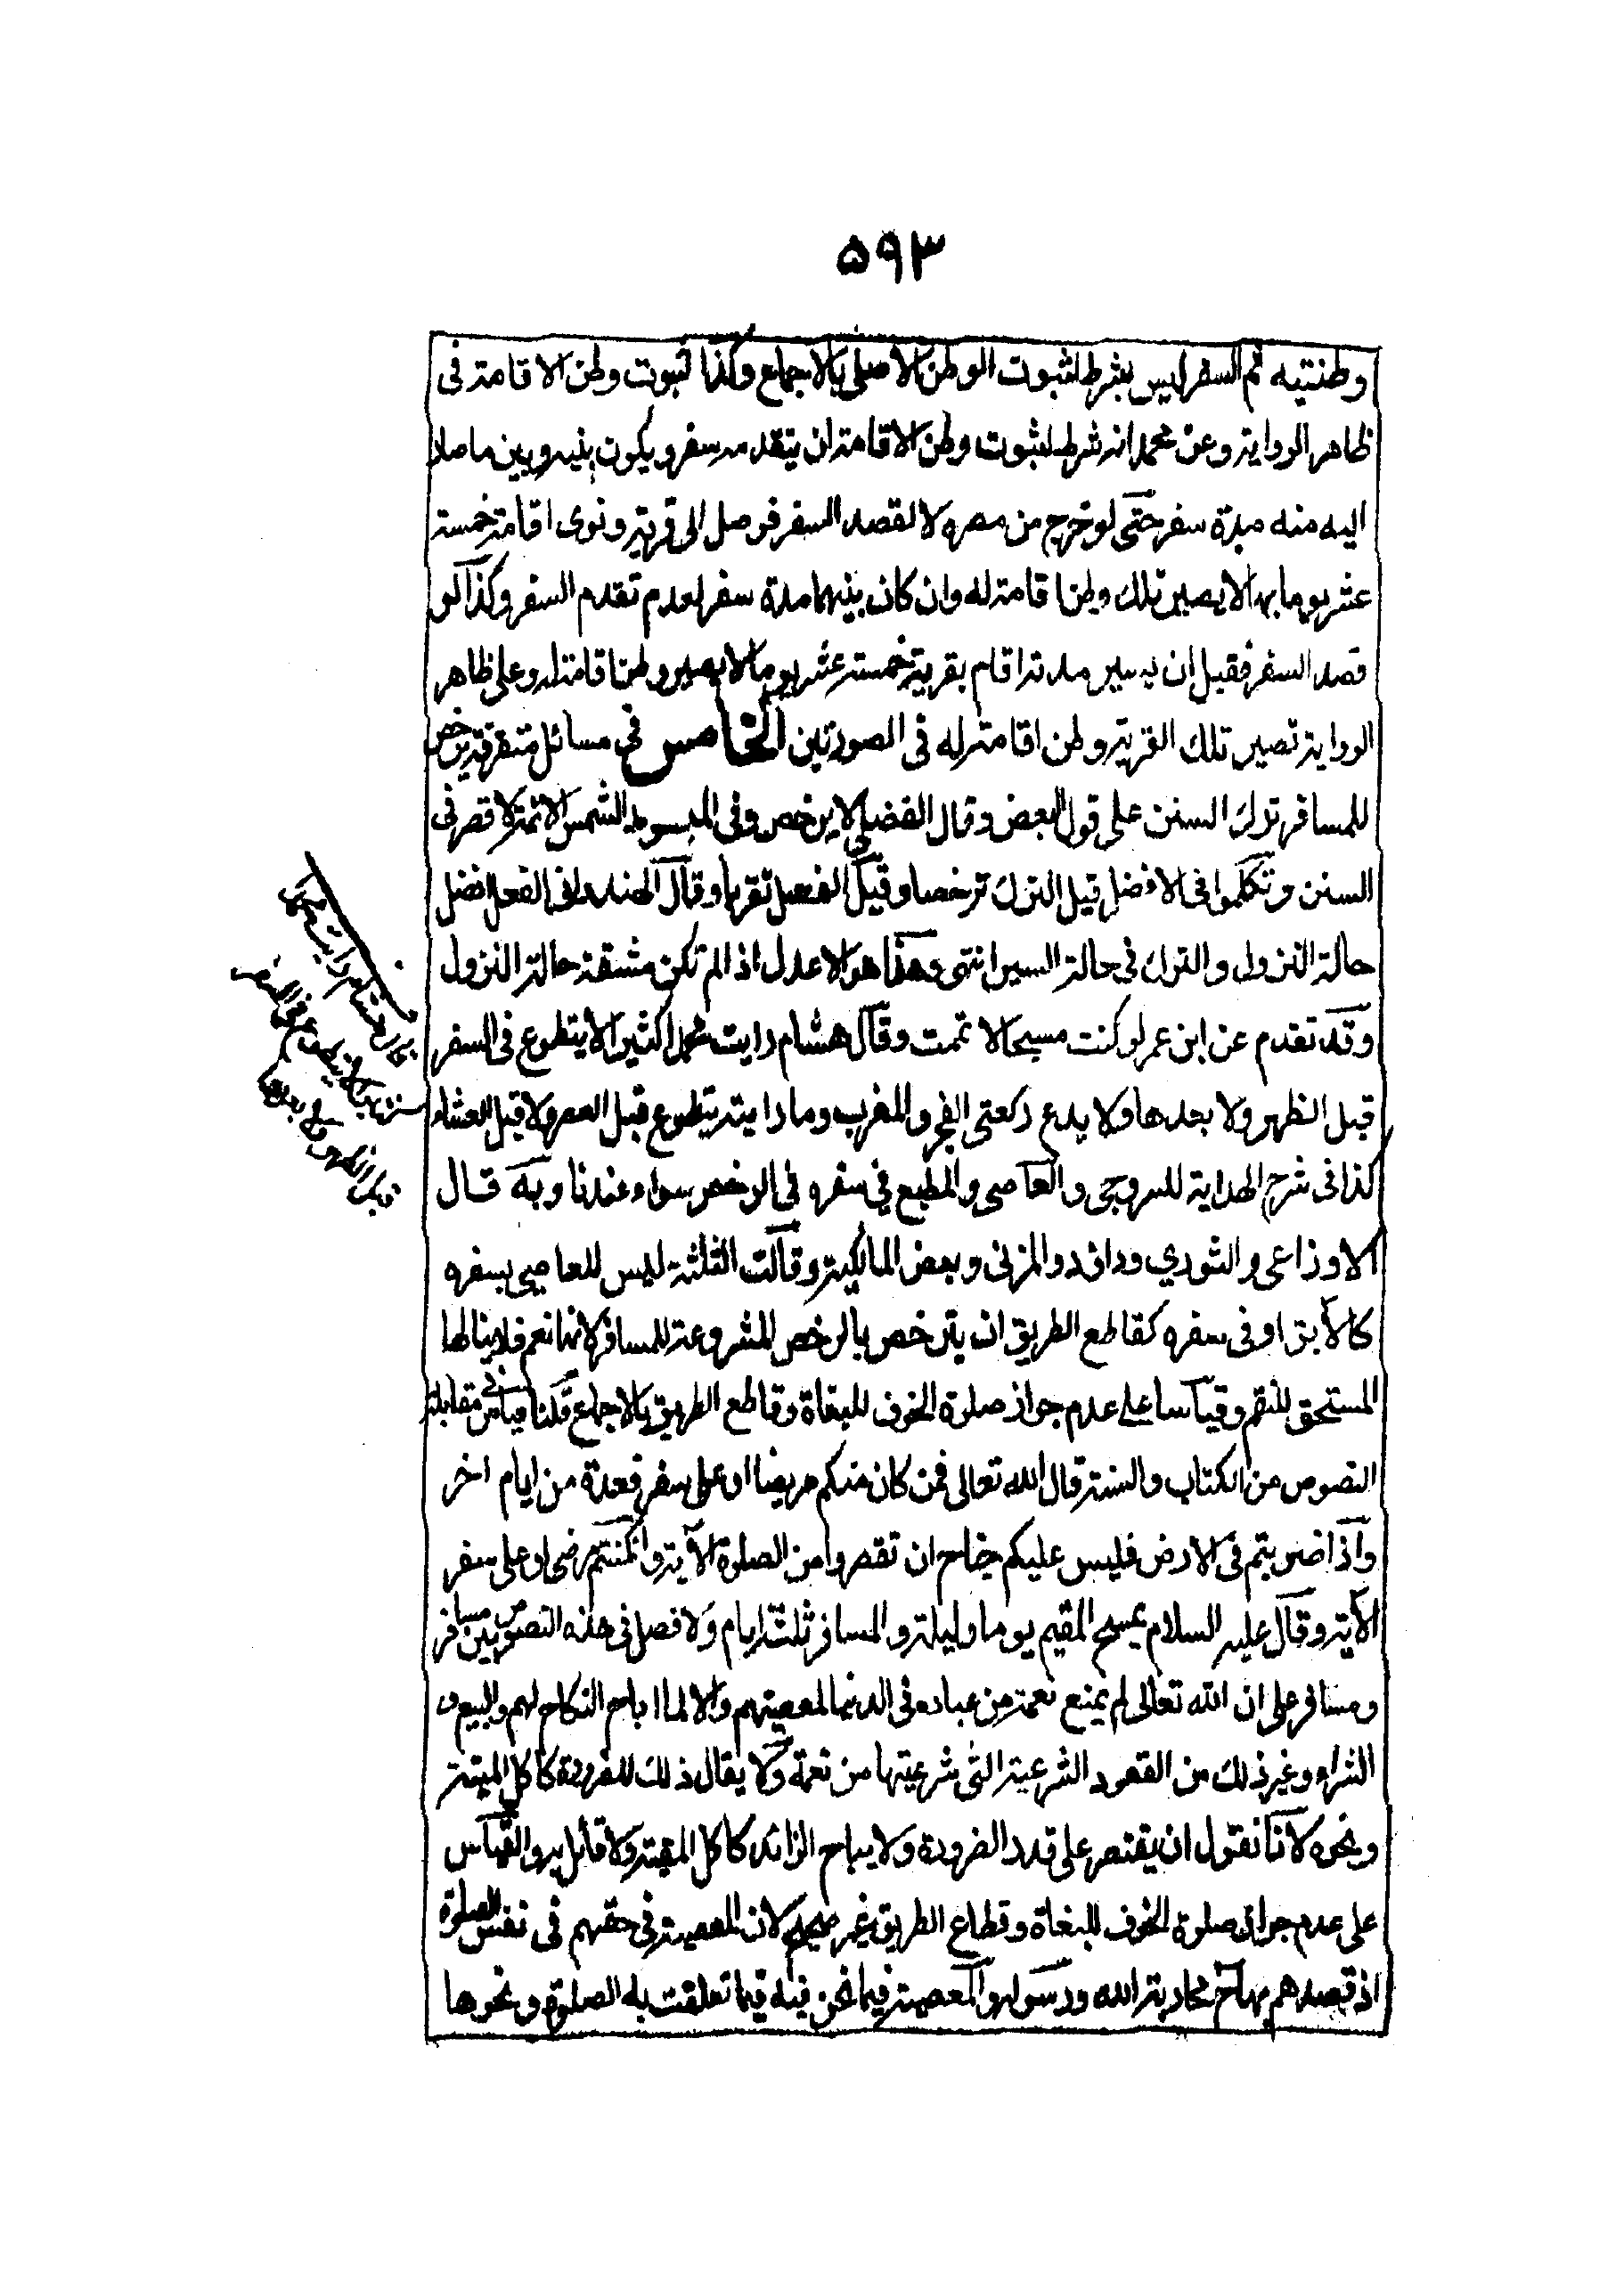 ٥٩٣
وطنتيه ثم السفر ليس بشرط لثبوت الوطن الاصلي بالاجماع وكذا لثبوت وطن الاقامة في
ظاهر الرواية وعن محمد انه شرط لثبوت وطن الاقامة ان يتقدمه سفر ويكون بينه وبين ما صار
اليه منه مدة سفر حتى لو خرج من مصره لا لقصد السفر فوصل الى قرية ونوى اقامة خمسة
عشر يوما بها لا يصير تلك وطن اقامة له وان كان بينهما مدة سفر لعدم تقدم السفر وكذا لو
قصد السفر فقبل ان يسير مدته اقام بقرية خمسة عشر يوما لا يصير وطن اقامة له وعلى ظاهر
الرواية تصير تلك القرية وطن اقامة له في الصورتين الخامس في مسائل متفرقة يرخص
للمسافر ترك السنن على قول البعض وقال الفضلي لا يرخص وفي المبسوط لشمس الائمة لا قصر في
السنن وتكلموا في الافضل قيل الترك ترخصا وقيل الفعل تقربا وقال الهندواني الفعل افضل
حالة النزول والترك في حالة السير انتهى وهذا هو الاعدل اذا لم تكن مشقة حالة النزول
وقد تقدم عن ابن عمر لو كنت مسبحا لاتممت وقال هشام رايت محمدا كثيرا لا يتطوع في السفر
قبل الظهر ولا بعدها ولا يدع ركعتي الفجر والمغرب وما رايته يتطوع قبل العصر ولا قبل العشاء
كذا في شرح الهداية للسروجي والعاصي والمطيع في سفره في الرخص سواء عندنا وبه قال
الاوزاعي والثوري وداؤد والمزني وبعض المالكية وقالت الثلثة ليس للعاصي بسفره
كالآبق او في سفره كقاطع الطريق ان يترخص بالرخص المشروعة للمسافر لانها نعم فلا ينالها
المستحق للنقم وقياسا على عدم جواز صلوة الخوف للبغاة وقاطع الطريق بالاجماع قلنا قياس في مقابلة
النصوص من الكتاب والسنة قال الله تعالى فمن كان منكم مريضا او على سفر فعدة من ايام اخر
واذا ضربتم في الارض فليس عليكم جناح ان تقصروا من الصلوة الآية وان كنتم مرضى او على سفر
الآية وقال عليه السلام يمسح المقيم يوما وليلة والمسافر ثلثة ايام ولا فصل في هذه النصوص بين مسافر
ومسافر على ان الله تعالى لم يمنع نعمة من عباده في الدنيا لمعصيتهم والا لما اباح النكاح لهم والبيع و
الشراء وغير ذلك من العقود الشرعية التي شرعيتها من نعمه ولا يقال ذلك للضرورة كاكل الميتة
ونحوه لانا نقول ان يقتصر على قدر الضرورة ولا يباح الزائد كاكل الميتة ولا قائل به والقياس
على عدم جواز صلوة الخوف للبغاة وقطاع الطريق غير صحيح لان المعصية في حقهم في نفس الصلوة
اذ قصدهم بها محاربة الله ورسوله والمعصية فيما نحن فيه فيما تعلقت به الصلوة ونحوها